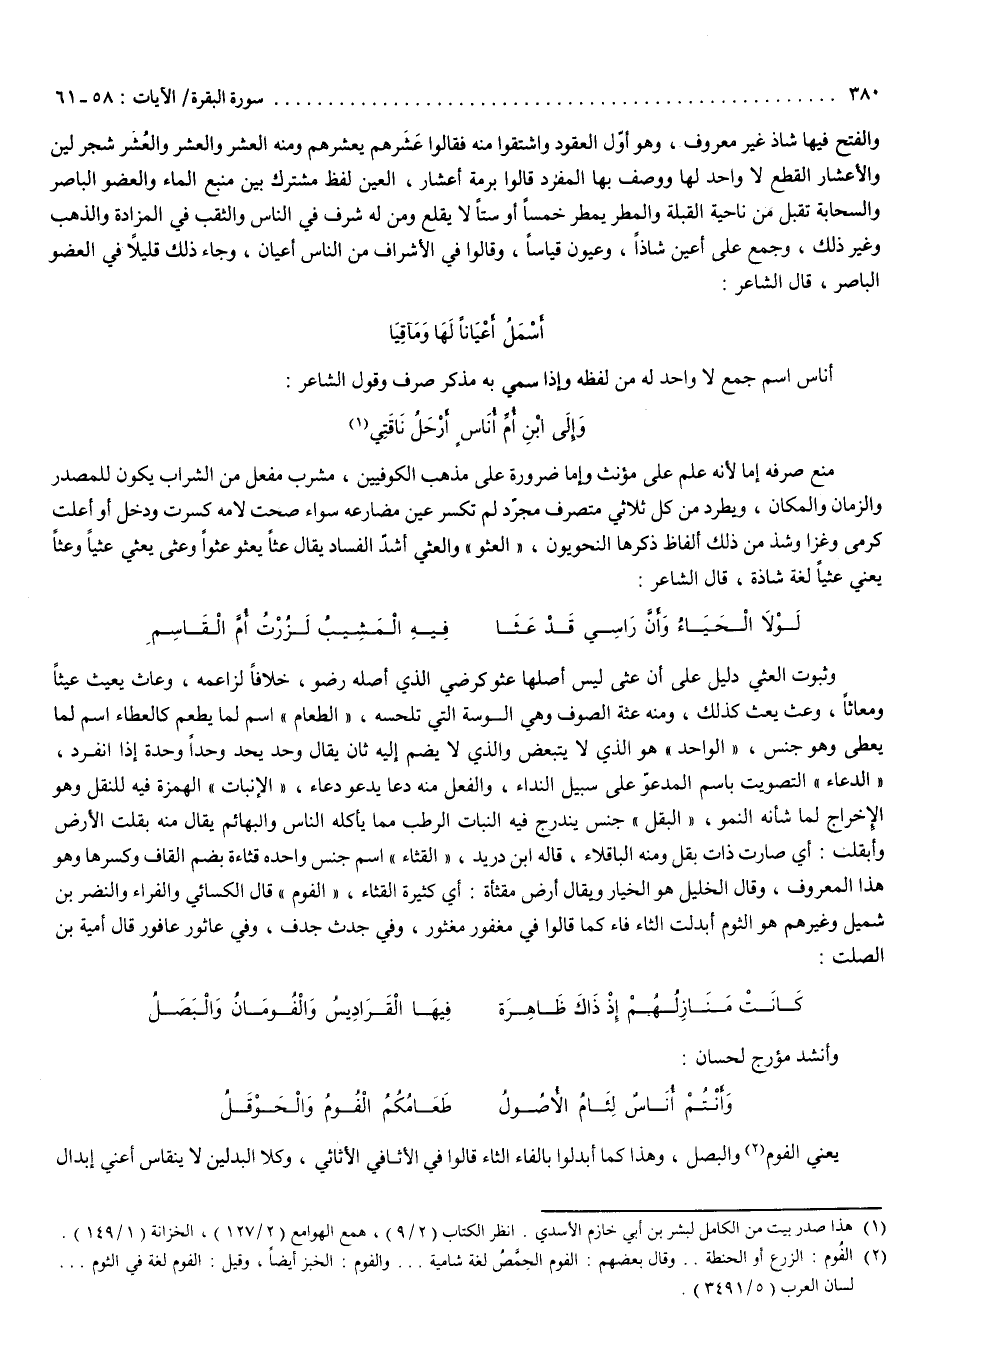 ٣٨٠ .................................................... سورة البقرة/ الآيات : ٥٨ - ٦١
والفتح فيها شاذ غير معروف ، وهو أوّل العقود واشتقوا منه فقالوا عَشَرهم يعشرهم ومنه العشر والعشر والعُشَر شجر لين
والأعشار القطع لا واحد لها ووصف بها المفرد قالوا برمة أعشار ، العين لفظ مشترك بين منبع الماء والعضو الباصر
والسحابة تقبل من ناحية القبلة والمطر يمطر خمساً أو ستاً لا يقلع ومن له شرف في الناس والثقب في المزادة والذهب
وغير ذلك ، وجمع على أعين شاذاً ، وعيون قياساً ، وقالوا في الأشراف من الناس أعيان ، وجاء ذلك قليلاً في العضو
الباصر ، قال الشاعر :
أَسْمَلُ أَعْيَاناً لَهَا وَمَآقِيَا
أناس اسم جمع لا واحد له من لفظه وإذا سمي به مذكر صرف وقول الشاعر :
وَإِلَى ابْنِ أُمِّ أُنَاسٍ أَرْحَلُ نَاقَتِي(١)
منع صرفه إما لأنه علم على مؤنث وإما ضرورة على مذهب الكوفيين ، مشرب مفعل من الشراب يكون للمصدر
والزمان والمكان ، ويطرد من كل ثلاثي متصرف مجرّد لم تكسر عين مضارعه سواء صحت لامه كسرت ودخل أو أعلت
كرمى وغزا وشذ من ذلك ألفاظ ذكرها النحويون ، « العثو » والعثي أشدّ الفساد يقال عثاً يعثو عثواً وعثى يعثي عثياً وعثاً
يعني عثياً لغة شاذة ، قال الشاعر :
لَوْلَا الْحَيَاءُ وَأَنَّ رَاسِي قَدْ عَثَا فِيهِ الْمَشِيبُ لَزُرْتُ أُمَّ الْقَاسِمِ
وثبوت العثي دليل على أن عثى ليس أصلها عثو كرضي الذي أصله رضو ، خلافاً لزاعمه ، وعاث يعيث عيثاً
ومعاثاً ، وعث يعث كذلك ، ومنه عثة الصوف وهي السوسة التي تلحسه ، « الطعام » اسم لما يطعم كالعطاء اسم لما
يعطى وهو جنس ، « الواحد » هو الذي لا يتبعض والذي لا يضم إليه ثان يقال وحد يحد وحداً وحدة إذا انفرد ،
« الدعاء » التصويت باسم المدعوّ على سبيل النداء ، والفعل منه دعا يدعو دعاء ، « الإنبات » الهمزة فيه للنقل وهو
الإخراج لما شأنه النمو ، « البقل » جنس يندرج فيه النبات الرطب مما يأكله الناس والبهائم يقال منه بقلت الأرض
وأبقلت : أي صارت ذات بقل ومنه الباقلاء ، قاله ابن دريد ، « القثاء » اسم جنس واحده قثاءة بضم القاف وكسرها وهو
هذا المعروف ، وقال الخليل هو الخيار ويقال أرض مقثأة : أي كثيرة القثاء ، « الفوم » قال الكسائي والفراء والنضر بن
شميل وغيرهم هو الثوم أبدلت الثاء فاء كما قالوا في مغفور مغثور ، وفي جدث جدف ، وفي عاثور عافور قال أمية بن
الصلت :
كَانَتْ مَنَازِلُهُمْ إِذْ ذَاكَ ظَاهِرَة فِيهَا الْفَرَادِيسُ وَالْفُومَانُ وَالْبَصَلُ
وأنشد مؤرج لحسان :
وَأَنْتُمْ أُنَاسٌ لِئَامُ الأُصُولُ طَعَامُكُمُ الْفُومُ وَالْحَوْقَلُ
يعني الفوم(٢) والبصل ، وهذا كما أبدلوا بالفاء الثاء قالوا في الأثافي الأثاثي ، وكلا البدلين لا ينقاس أعني إبدال
(١) هذا صدر بيت من الكامل لبشر بن أبي خازم الأسدي . انظر الكتاب ( ٩/٢ ) ، همع الهوامع ( ١٢٧/٢ ) ، الخزانة ( ١٤٩/١ ) .
(٢) الفُوم : الزرع أو الحنطة .. وقال بعضهم : الفوم الحِمَّصُ لغة شامية ... والفوم : الخبز أيضاً ، وقيل : الفوم لغة في الثوم ...
لسان العرب ( ٣٤٩١/٥ ) .